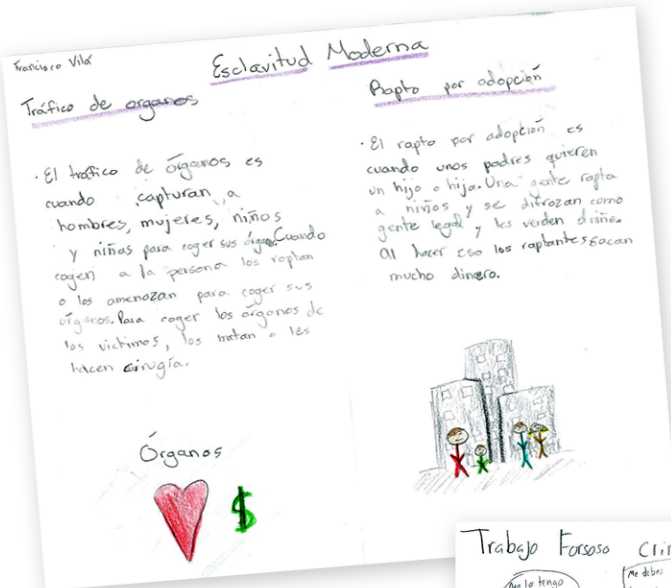 Francisco Vilá
Esclavitud Moderna
Tráfico de organos
· El trafico de órganos es
cuando capturan a
hombres, mujeres, niños
y niñas para coger sus órganos. Cuando
cogen a la persona los raptan
o los amenazan para coger sus
órganos. Para coger los órganos de
las victimas, los matan o les
hacen cirugía.
Órganos
$
Rapto por adopción
· El rapto por adopción es
cuando unos padres quieren
un hijo o hija. Una gente rapta
a niños y se difrozan como
gente legal y les venden
al hacer eso los raptantes sacan
mucho dinero.
Trabajo Forsoso
no lo tengo
Me debes